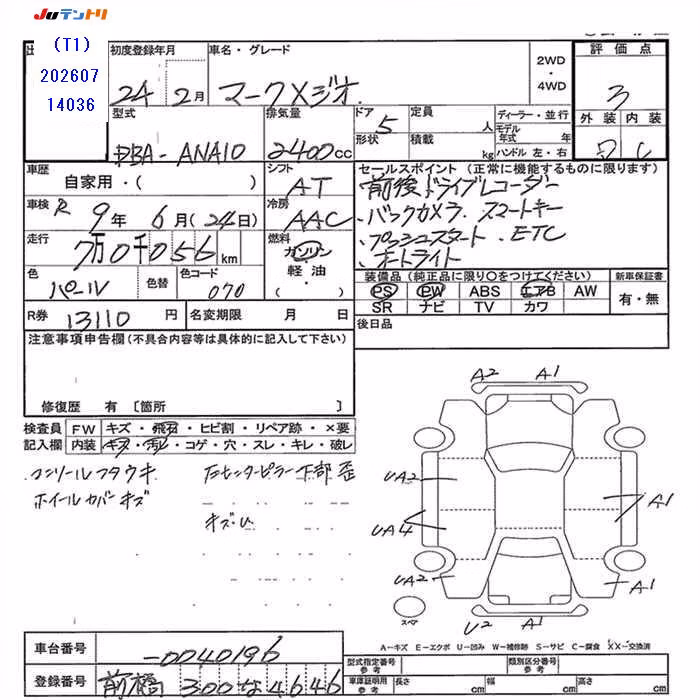 JUテントリ
(T1)
202607
14036
初度登録年月
車名・グレード
2WD
・
4WD
評価点
24 2月
マークXジオ
3
型式
排気量
ドア 5
形状
定員
人
積載
kg
ディーラー・並行
モデル
年式 年
ハンドル 左・右
外装 内装
C
DBA-ANA10
2400cc
車歴
自家用・( )
シフト
AT
セールスポイント (正常に機能するものに限ります)
前後ドライブレコーダー
バックカメラ. スマートキー
プッシュスタート. ETC
オートライト
車検 R 9年 6月(24日)
冷房
AAC
走行
7万0千056km
燃料
ガソリン
軽油・
( )
色
パール
色替
色コード
070
装備品 (純正品に限り○をつけてください)
PS PW ABS エアB AW
SR ナビ TV カワ
新車保証書
有・無
R券 13110円
名変期限 月 日
後日品
注意事項申告欄(不具合内容等は具体的に記入して下さい)
修復歴 有 〔箇所 〕
検査員
記入欄
FW キズ・飛石・ヒビ割・リペア跡・×要
内装 キズ・汚れ・コゲ・穴・スレ・キレ・破レ
コンソールフタウキ
ホイールカバーキズ
センターピラー下部 歪
キズU
A2 A1
UA2
UA4
UA2
A1
A1
U2 A1
スペア
A-キズ E-エクボ U-凹み W-補修跡 S-サビ C-腐食 XX-交換済
車台番号
-0040196
登録番号
前橋 300 な 4646
型式指定番号
参考
類別区分番号
参考
車庫証明用
参考
長さ cm 幅 cm 高さ cm